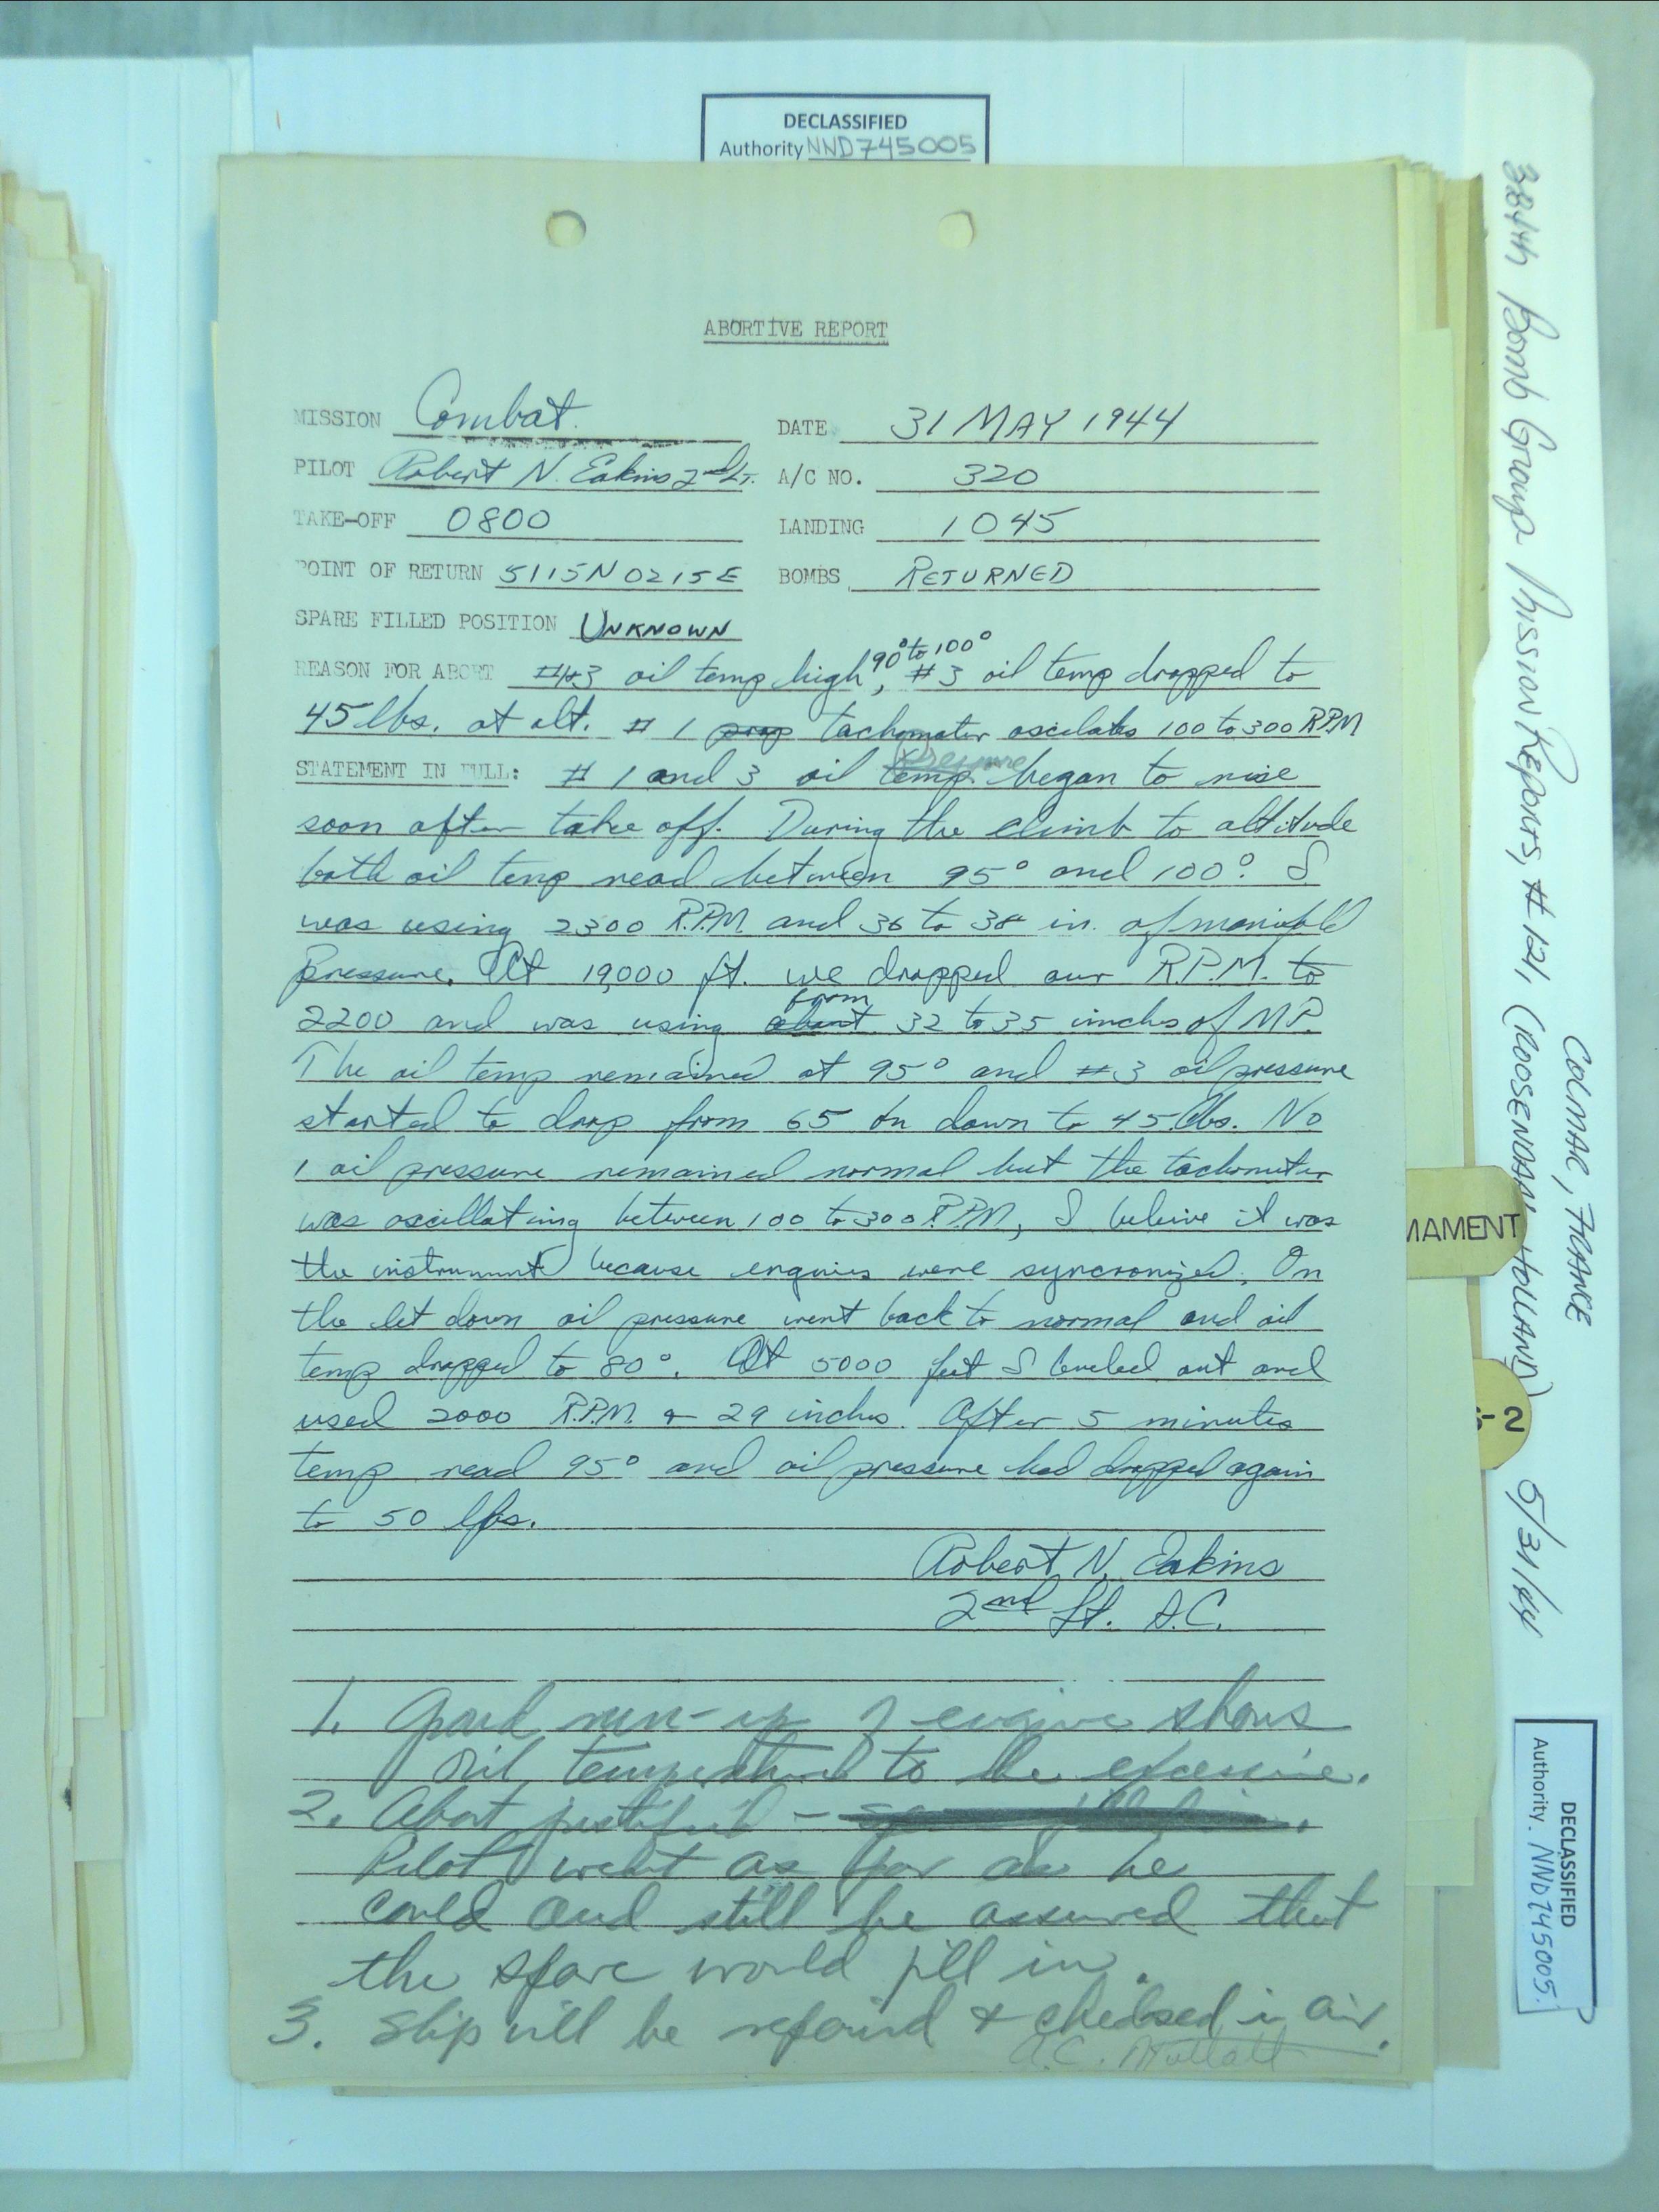 DECLASSIFIED
Authority NND745005
ABORTIVE REPORT
MISSION Combat. DATE 31 MAY 1944
PILOT Robert N. Eakins 2nd Lt. A/C NO. 320
TAKE-OFF 0800 LANDING 1045
POINT OF RETURN 5115N 0215E BOMBS RETURNED
SPARE FILLED POSITION UNKNOWN
REASON FOR ABORT #3 oil temp high, 90° to 100° #3 oil temp dropped to
45 lbs. at alt. # 1 prop tachometer oscilates 100 to 300 RPM
STATEMENT IN FULL: # 1 and 3 oil temp. pressure began to rise
soon after take off. During the climb to altitude
both oil temp read between 95° and 100°. I
was using 2300 R.P.M. and 36 to 38 in. of manifold
Pressure. At 19,000 ft. we dropped our R.P.M. to
2200 and was using about from 32 to 35 inches of M.P.
The oil temp remained at 95° and #3 oil pressure
started to drop from 65 on down to 45 lbs. No
1 oil pressure remained normal but the tachometer
was oscillating between 100 to 300 R.P.M, I believe it was
the instrument because engines were syncronized. On
the let down oil pressure went back to normal and oil
temp dropped to 80°. At 5000 feet I leveled out and
used 2000 R.P.M. & 29 inches. After 5 minutes
temp read 95° and oil pressure had dropped again
to 50 lbs.
Robert N. Eakins
2nd Lt. A.C.
1. Ground run-up of engine shows
oil temperature to be excessive.
2. Abort justified -
Pilot went as far as he
could and still be assured that
the spare would fill in.
3. Ship will be repaired & checked in air.
A.C.
384th Bomb Group Mission Reports, #121, (ROOSENDAAL, HOLLAND) 5/31/44
COLMAR, FRANCE
MAMENT
-2
DECLASSIFIED
Authority. NND745005.